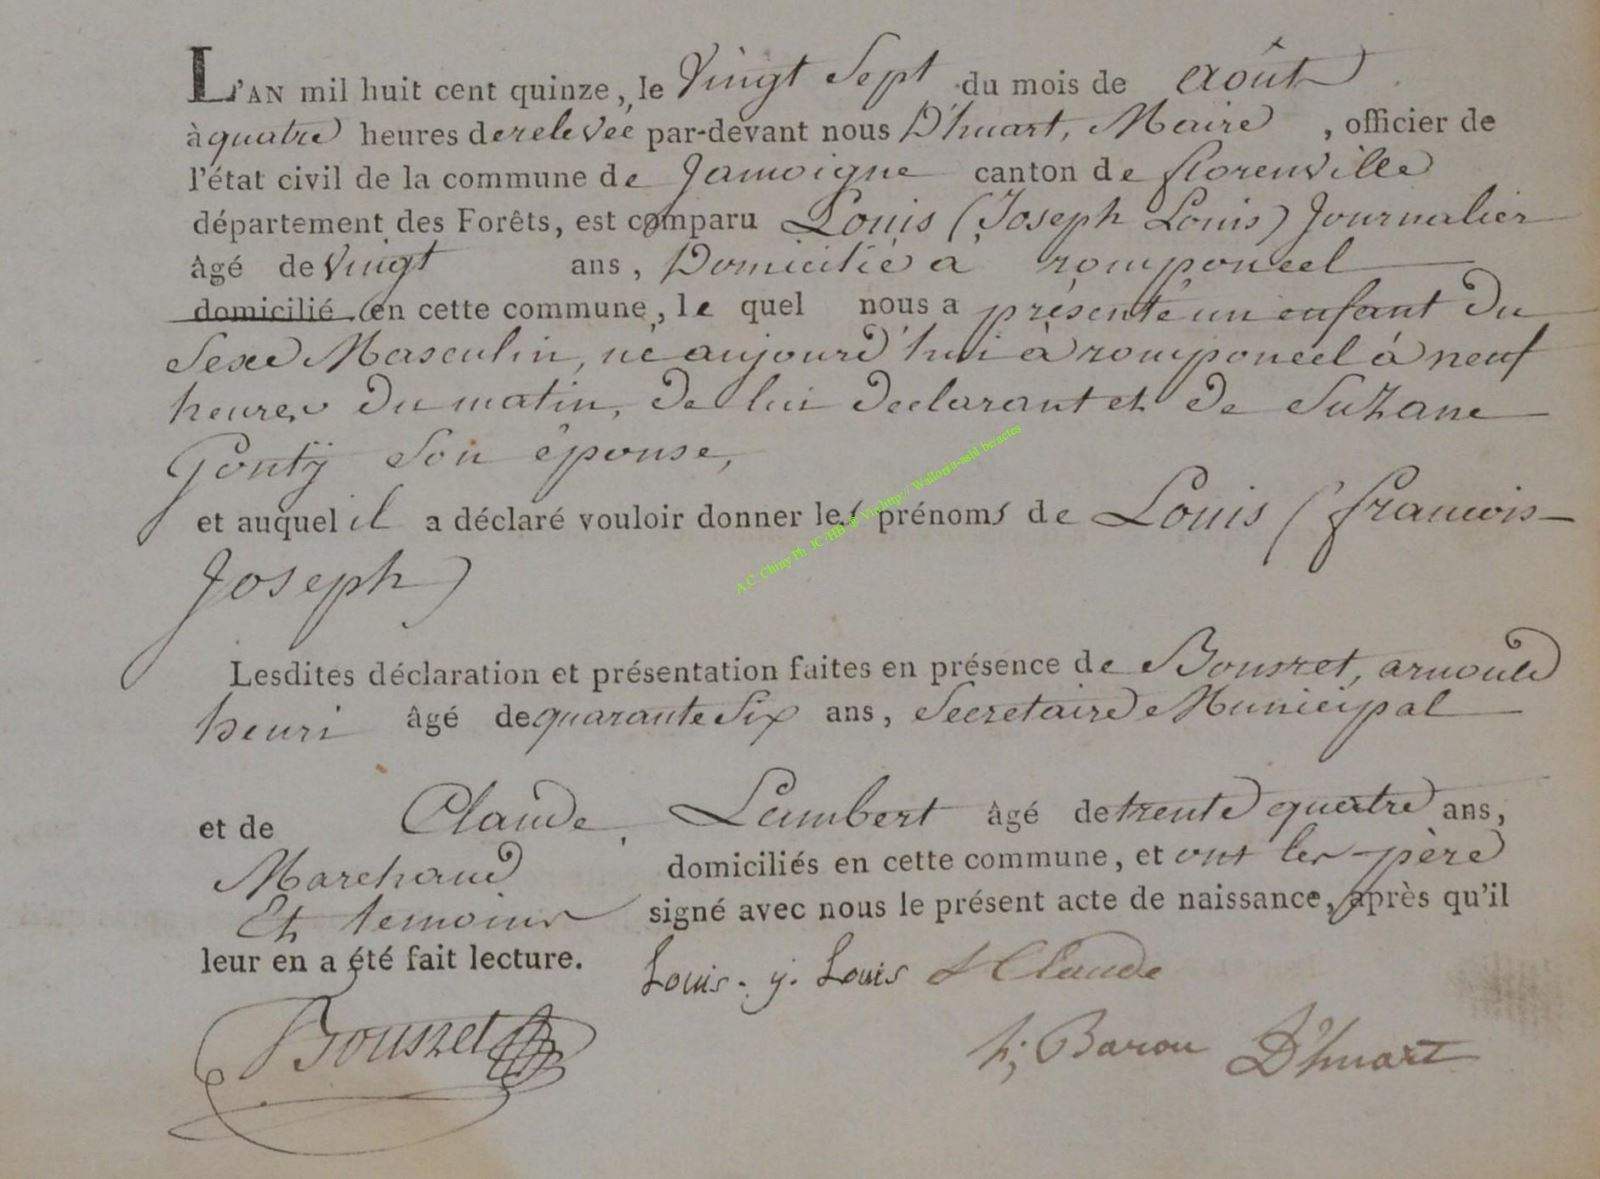 L'AN mil huit cent quinze, le Vingt Sept du mois de Août
à quatre heures de relevée par-devant nous D'huart, Maire, officier de
l'état civil de la commune de Jamoigne canton de florenville
département des Forêts, est comparu Louis (Joseph Louis) Journalier
âgé de Vingt ans, Domicilié à romponcel
domicilié en cette commune, le quel nous a présenté un enfant du
Sexe Masculin, né aujourd'hui à romponcel à neuf
heures du matin, de lui declarant et de Suzane
Gouty son épouse,
et auquel il a déclaré vouloir donner les prénoms de Louis (francois-
Joseph)
Lesdites déclaration et présentation faites en présence de Bouszet, arnould
henri âgé de quarante Six ans, Secretaire Municipal
et de Claude, Lambert âgé de trente quatre ans,
Marchand domiciliés en cette commune, et ont les père
Et temoins signé avec nous le présent acte de naissance, après qu'il
leur en a été fait lecture. Louis. j. Louis L Claude
Bouszet h; Baron D'huart
A.C. Chiny Ph. JC/HB